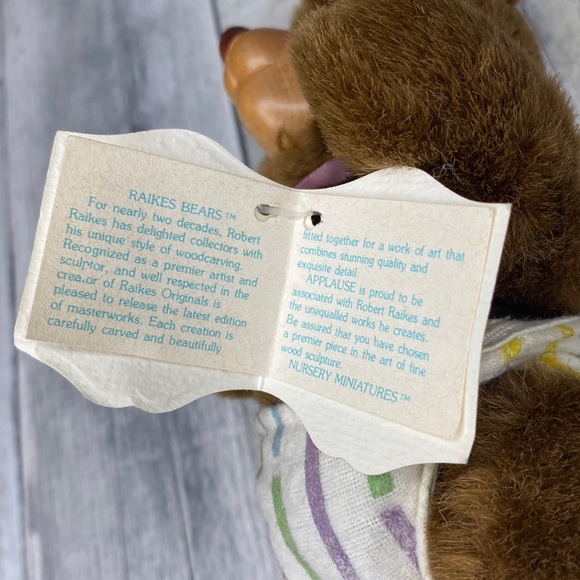 RAIKES BEARS™
For nearly two decades, Robert
Raikes has delighted collectors with
his unique style of woodcarving.
Recognized as a premier artist and
sculptor, and well respected in the
creator of Raikes Originals is
pleased to release the latest edition
of masterworks. Each creation is
carefully carved and beautifully
fitted together for a work of art that
combines stunning quality and
exquisite detail.
APPLAUSE is proud to be
associated with Robert Raikes and
the unequalled works he creates.
Be assured that you have chosen
a premier piece in the art of fine
wood sculpture.
NURSERY MINIATURES™